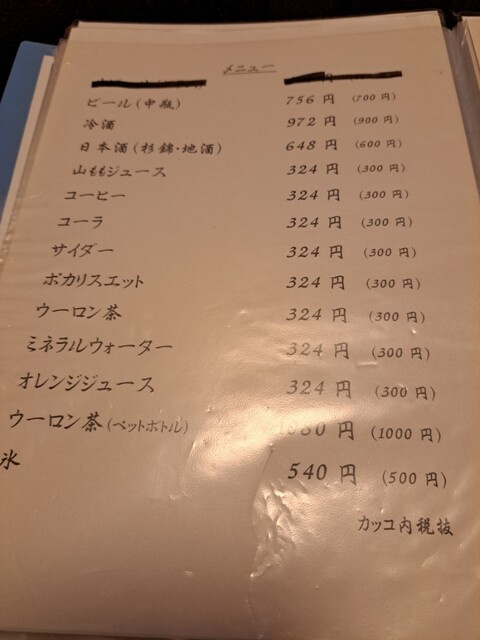 メニュー
ビール(中瓶) 756 円 (700 円)
冷酒 972 円 (900 円)
日本酒(杉錦・地酒) 648 円 (600 円)
山ももジュース 324 円 (300 円)
コーヒー 324 円 (300 円)
コーラ 324 円 (300 円)
サイダー 324 円 (300 円)
ポカリスエット 324 円 (300 円)
ウーロン茶 324 円 (300 円)
ミネラルウォーター 324 円 (300 円)
オレンジジュース 324 円 (300 円)
ウーロン茶(ペットボトル) 1080 円 (1000 円)
氷 540 円 (500 円)
カッコ内税抜